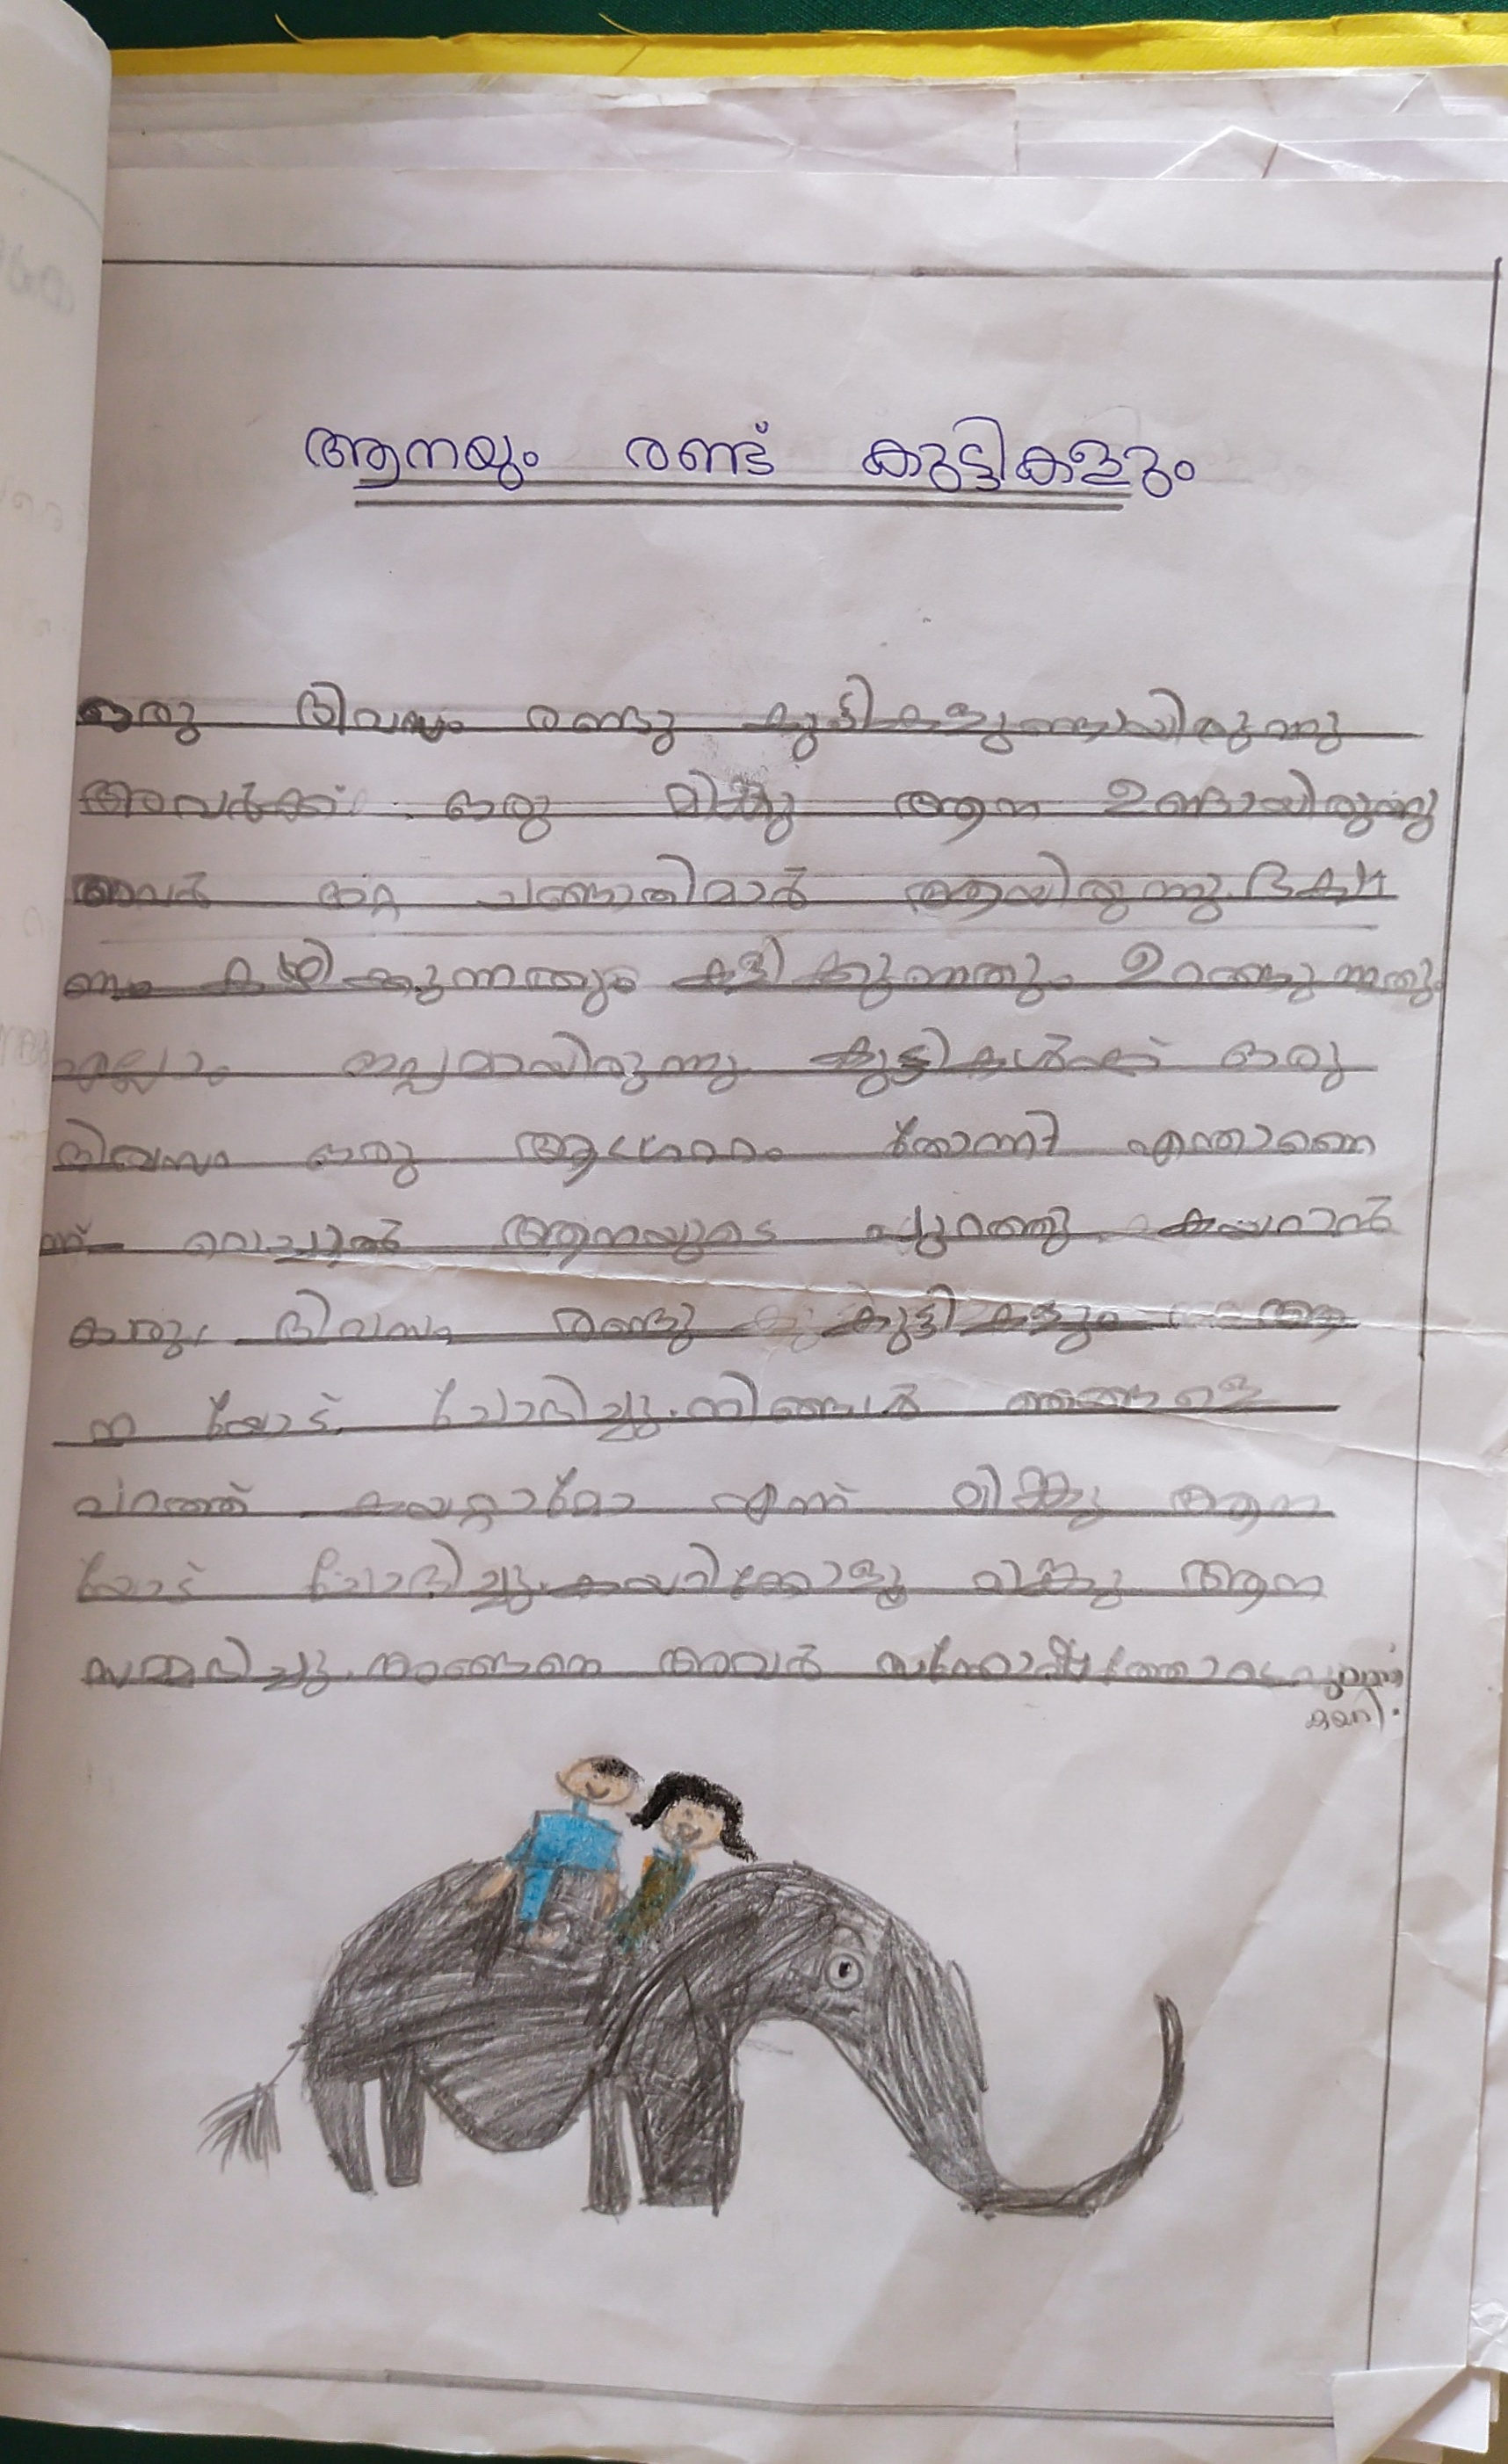 ആനയും രണ്ട് കുട്ടികളും
ഒരു ദിവസം രണ്ടു കുട്ടികളുണ്ടായിരുന്നു
അവർക്ക് ഒരു മിങ്കു ആന ഉണ്ടായിരുന്നു
അവർ ചങ്ങാതിമാർ ആയിരുന്നു. ഭക്ഷ
ണം കഴിക്കുന്നതും കളിക്കുന്നതും ഉറങ്ങുന്നതും
എല്ലാം ഒപ്പമായിരുന്നു കുട്ടികൾക്ക് ഒരു
ദിവസം ഒരു ആഗ്രഹം തോന്നി എന്താണെ
ന്ന് വെച്ചാൽ ആനയുടെ പുറത്തു കയറാൻ
ഒരു ദിവസം രണ്ടു കുട്ടികളും ആ
ന യോട് ചോദിച്ചു. നിങ്ങൾ ഞങ്ങളെ
പുറത്ത് കയറ്റാമോ എന്ന് മിങ്കു ആന
യോട് ചോദിച്ചു. കയറിക്കോളൂ മിങ്കു ആന
സമ്മദിച്ചു. അങ്ങനെ അവർ സന്തോഷത്തോടെ പുറത്ത്
കയറി.